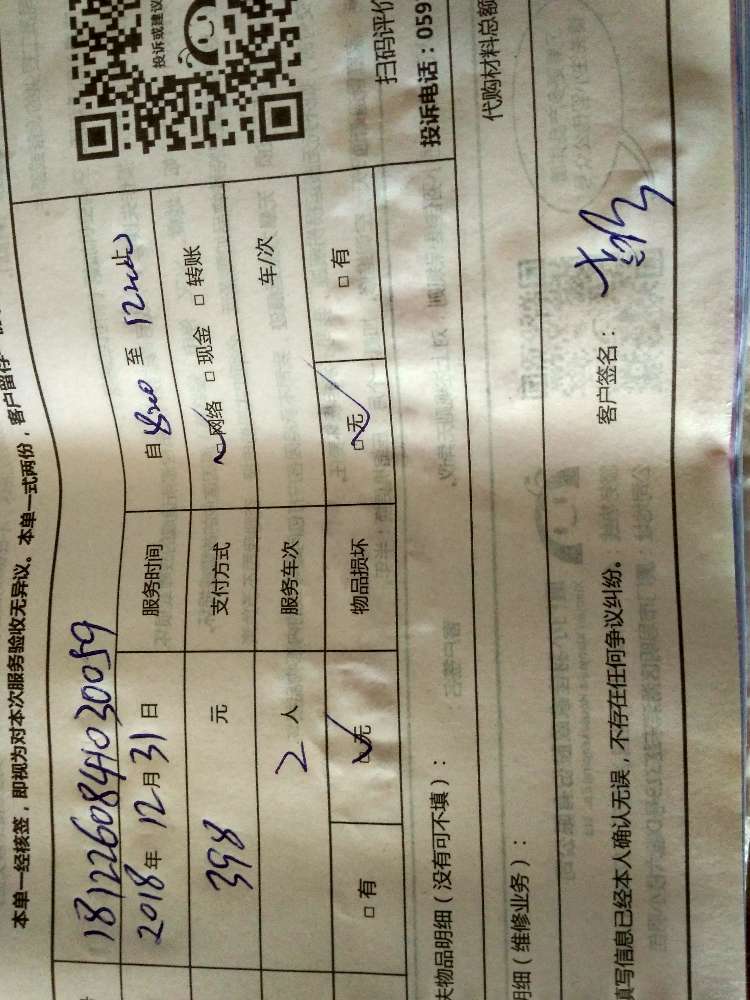 本单一经核签，即视为对本次服务验收无异议。本单一式两份，客户留存
1812260841030059
2018年12月31日 服务时间 自8:00至12:00止
398元 支付方式 □网络 □现金 □转账
2人 服务车次 车/次
□有 □无 物品损坏 □无 □有
投诉或建议
扫码评价
投诉电话：059
失物品明细（没有可不填）：
明细（维修业务）： 代购材料总额
填写信息已经本人确认无误，不存在任何争议纠纷。 客户签名：